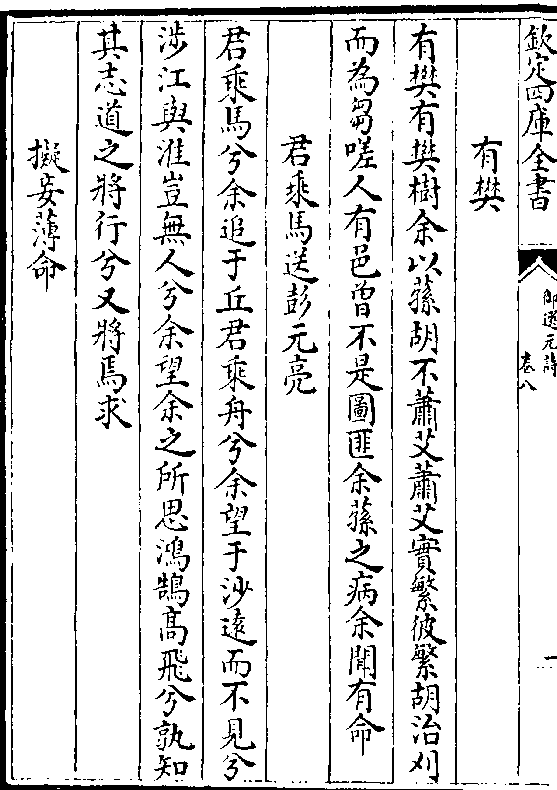 欽定四庫全書
御選元詩
卷八
一
有樊
有樊有樊樹余以蓀胡不蕭艾蕭艾實繁彼繁胡治刈
而為芻嗟人有邑曾不是圖匪余蓀之病余聞有命
君乘馬送彭元亮
君乘馬兮余追于丘君乘舟兮余望于沙遠而不見兮
涉江與淮豈無人兮余望余之所思鴻鵠高飛兮孰知
其志道之將行兮又將焉求
擬妾薄命